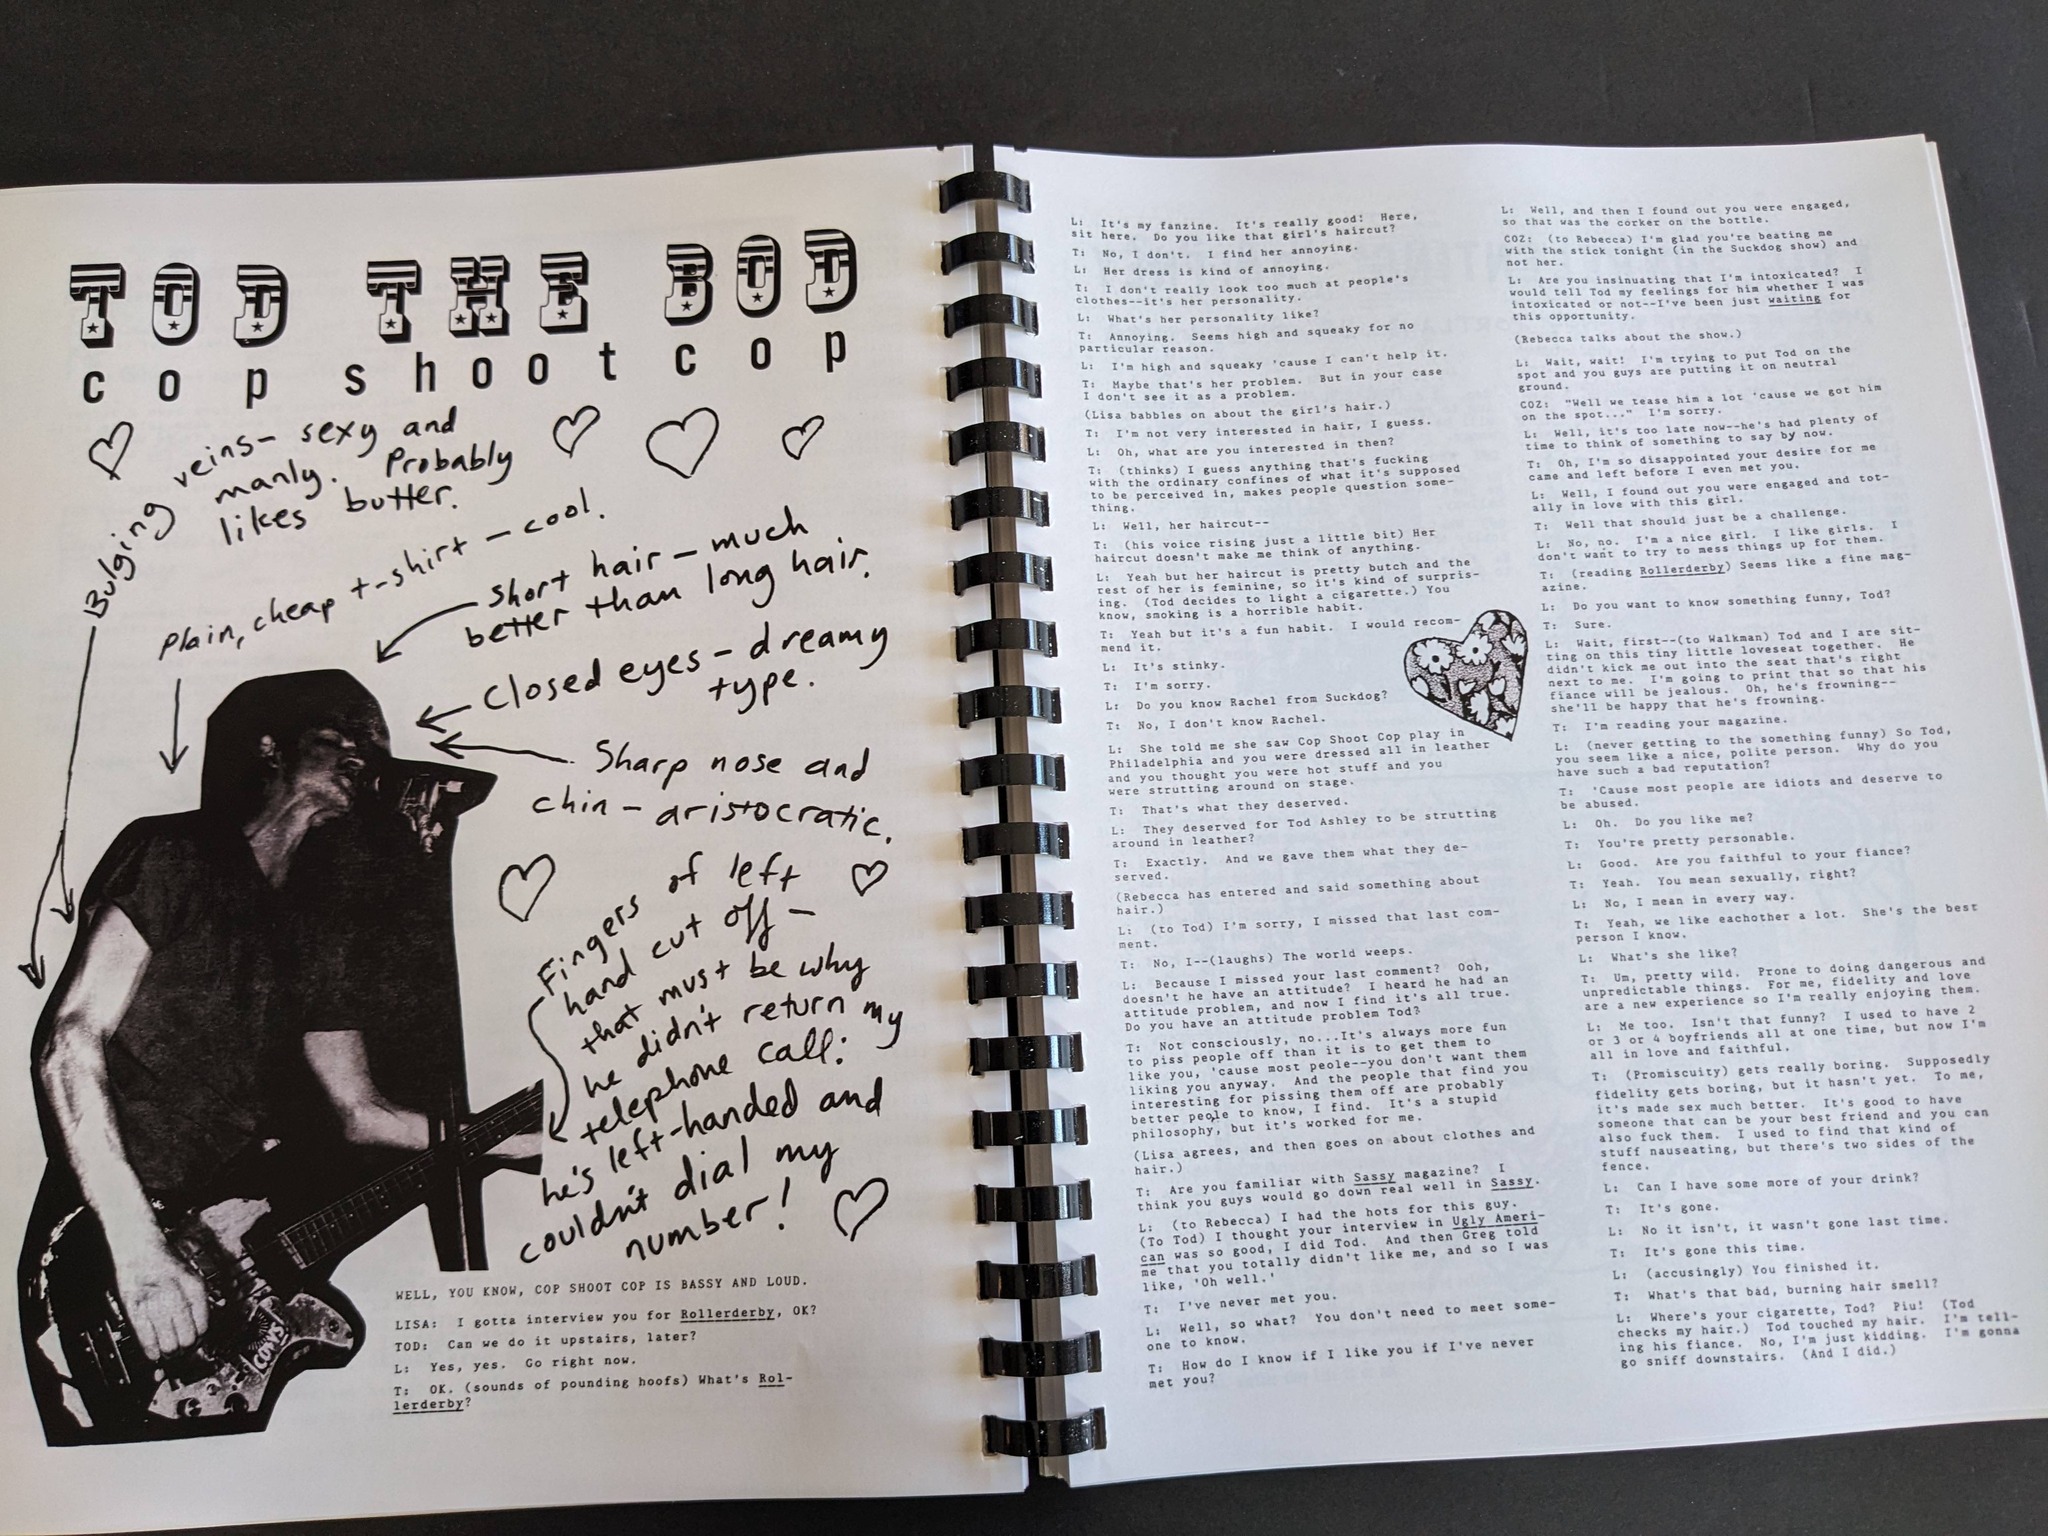 TOD THE BOD
cop shoot cop
Bulging veins- sexy and
manly. Probably
likes butter.
Plain, cheap t-shirt - cool.
Short hair - much
better than long hair.
Closed eyes - dreamy
type.
Sharp nose and
chin - aristocratic.
Fingers of left
hand cut off -
that must be why
he didn't return my
telephone call:
he's left-handed and
couldn't dial my
number!
COPS
WELL, YOU KNOW, COP SHOOT COP IS BASSY AND LOUD.
LISA: I gotta interview you for Rollerderby, OK?
TOD: Can we do it upstairs, later?
L: Yes, yes. Go right now.
T: OK. (sounds of pounding hoofs) What's Rol-
lerderby?
L: It's my fanzine. It's really good! Here,
sit here. Do you like that girl's haircut?
T: No, I don't. I find her annoying.
L: Her dress is kind of annoying.
T: I don't really look too much at people's
clothes--it's her personality.
L: What's her personality like?
T: Annoying. Seems high and squeaky for no
particular reason.
L: I'm high and squeaky 'cause I can't help it.
T: Maybe that's her problem. But in your case
I don't see it as a problem.
(Lisa babbles on about the girl's hair.)
T: I'm not very interested in hair, I guess.
L: Oh, what are you interested in then?
T: (thinks) I guess anything that's fucking
with the ordinary confines of what it's supposed
to be perceived in, makes people question some-
thing.
L: Well, her haircut--
T: (his voice rising just a little bit) Her
haircut doesn't make me think of anything.
L: Yeah but her haircut is pretty butch and the
rest of her is feminine, so it's kind of surpris-
ing. (Tod decides to light a cigarette.) You
know, smoking is a horrible habit.
T: Yeah but it's a fun habit. I would recom-
mend it.
L: It's stinky.
T: I'm sorry.
L: Do you know Rachel from Suckdog?
T: No, I don't know Rachel.
L: She told me she saw Cop Shoot Cop play in
Philadelphia and you were dressed all in leather
and you thought you were hot stuff and you
were strutting around on stage.
T: That's what they deserved.
L: They deserved for Tod Ashley to be strutting
around in leather?
T: Exactly. And we gave them what they de-
served.
(Rebecca has entered and said something about
hair.)
L: (to Tod) I'm sorry, I missed that last com-
ment.
T: No, I--(laughs) The world weeps.
L: Because I missed your last comment? Ooh,
doesn't he have an attitude? I heard he had an
attitude problem, and now I find it's all true.
Do you have an attitude problem Tod?
T: Not consciously, no...It's always more fun
to piss people off than it is to get them to
like you, 'cause most peole--you don't want them
liking you anyway. And the people that find you
interesting for pissing them off are probably
better people to know, I find. It's a stupid
philosophy, but it's worked for me.
(Lisa agrees, and then goes on about clothes and
hair.)
T: Are you familiar with Sassy magazine? I
think you guys would go down real well in Sassy.
L: (to Rebecca) I had the hots for this guy.
(To Tod) I thought your interview in Ugly Ameri-
can was so good, I did Tod. And then Greg told
me that you totally didn't like me, and so I was
like, 'Oh well.'
T: I've never met you.
L: Well, so what? You don't need to meet some-
one to know.
T: How do I know if I like you if I've never
met you?
L: Well, and then I found out you were engaged,
so that was the corker on the bottle.
COZ: (to Rebecca) I'm glad you're beating me
with the stick tonight (in the Suckdog show) and
not her.
L: Are you insinuating that I'm intoxicated? I
would tell Tod my feelings for him whether I was
intoxicated or not--I've been just waiting for
this opportunity.
(Rebecca talks about the show.)
L: Wait, wait! I'm trying to put Tod on the
spot and you guys are putting it on neutral
ground.
COZ: "Well we tease him a lot 'cause we got him
on the spot..." I'm sorry.
L: Well, it's too late now--he's had plenty of
time to think of something to say by now.
T: Oh, I'm so disappointed your desire for me
came and left before I even met you.
L: Well, I found out you were engaged and tot-
ally in love with this girl.
T: Well that should just be a challenge.
L: No, no. I'm a nice girl. I like girls. I
don't want to try to mess things up for them.
T: (reading Rollerderby) Seems like a fine mag-
azine.
L: Do you want to know something funny, Tod?
T: Sure.
L: Wait, first--(to Walkman) Tod and I are sit-
ting on this tiny little loveseat together. He
didn't kick me out into the seat that's right
next to me. I'm going to print that so that his
fiance will be jealous. Oh, he's frowning--
she'll be happy that he's frowning.
T: I'm reading your magazine.
L: (never getting to the something funny) So Tod,
you seem like a nice, polite person. Why do you
have such a bad reputation?
T: 'Cause most people are idiots and deserve to
be abused.
L: Oh. Do you like me?
T: You're pretty personable.
L: Good. Are you faithful to your fiance?
T: Yeah. You mean sexually, right?
L: No, I mean in every way.
T: Yeah, we like eachother a lot. She's the best
person I know.
L: What's she like?
T: Um, pretty wild. Prone to doing dangerous and
unpredictable things. For me, fidelity and love
are a new experience so I'm really enjoying them.
L: Me too. Isn't that funny? I used to have 2
or 3 or 4 boyfriends all at one time, but now I'm
all in love and faithful.
T: (Promiscuity) gets really boring. Supposedly
fidelity gets boring, but it hasn't yet. To me,
it's made sex much better. It's good to have
someone that can be your best friend and you can
also fuck them. I used to find that kind of
stuff nauseating, but there's two sides of the
fence.
L: Can I have some more of your drink?
T: It's gone.
L: No it isn't, it wasn't gone last time.
T: It's gone this time.
L: (accusingly) You finished it.
T: What's that bad, burning hair smell?
L: Where's your cigarette, Tod? Piu! (Tod
checks my hair.) Tod touched my hair. I'm tell-
ing his fiance. No, I'm just kidding. I'm gonna
go sniff downstairs. (And I did.)